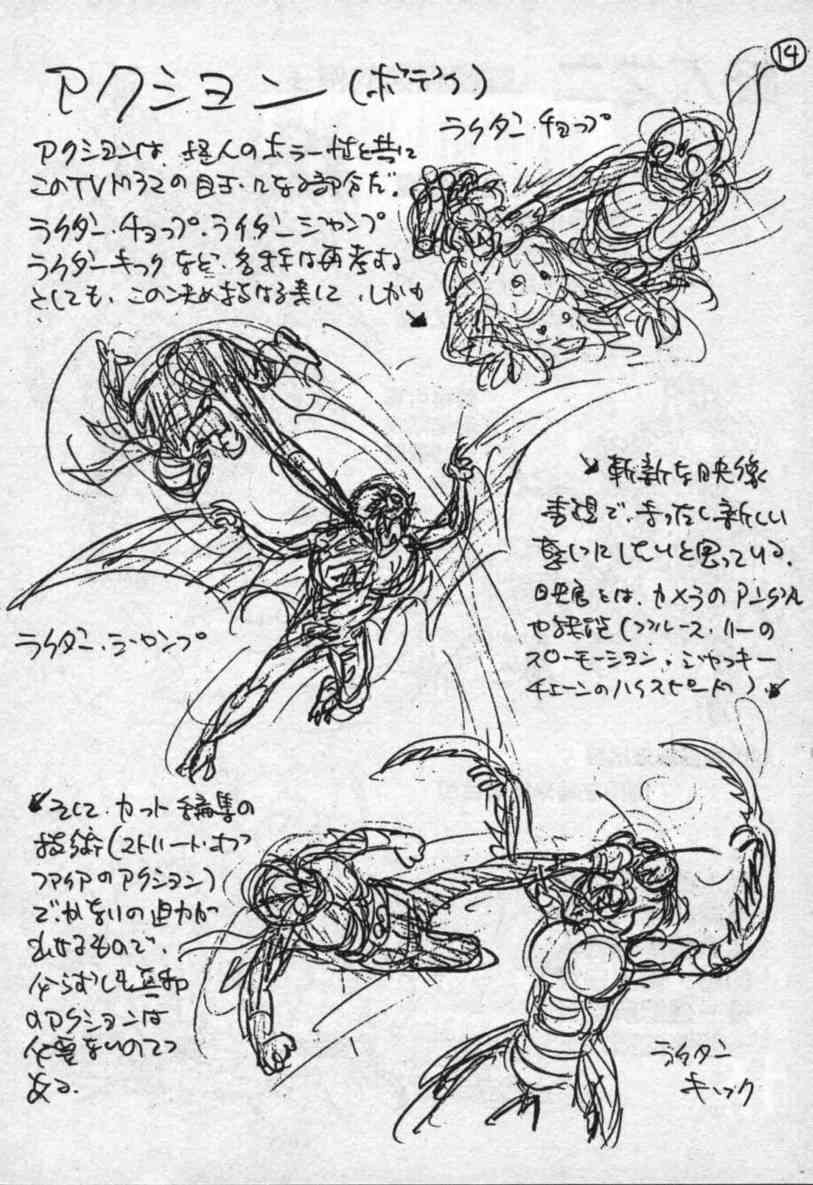 14
アクション(ボディ)
アクションは、怪人のホラー性と共に
このTVドラマの目玉になる部分だ。
ライダーチョップ
ライダー・チョップ・ライダージャンプ
ライダーキックなど、名称は再考する
としても、この決め技はる美して、しかも
斬新な映像
表現で、まったく新しい
感じにしたいと思っている。
映像とは、カメラのアングル
や技法(ブルース・リーの
スローモーション・ジャッキー
チェーンのハイスピード)
ライダー・ジャンプ
そして、カット編集の
技術(ストリート・オブ
ファイアのアクション)
でかなりの迫力が
出せるもので、
必らずしも生身
のアクションは
必要ないので
ある。
ライダー
キック